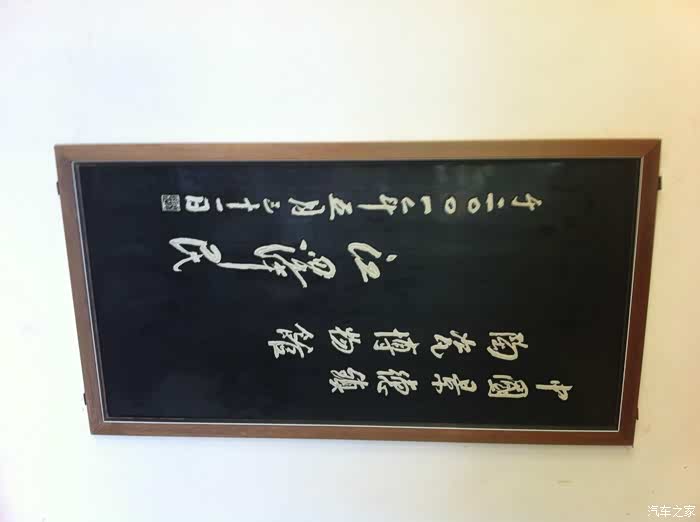 中國景德鎮
陶瓷博物館
江澤民
于二〇〇一年五月三十一日
汽车之家